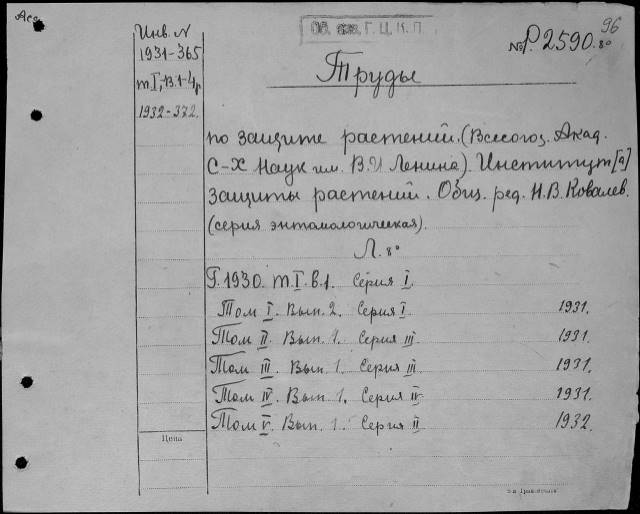 96
Инв. N
1931-365
т I, в. 1-4
1932-372.
№ Р. 2590. 8°
Труды
по защите растений. (Всесоюз. Акад.
С-Х Наук им. В.И Ленина). Институт[а]
защиты растений. Общ. ред. Н.В. Ковалев.
(серия энтомологическая).
Л. 8°
Г. 1930. т. I. в. 1. Серия I.
Том I. Вып. 2. Серия I. 1931.
Том II. Вып. 1. Серия III 1931.
Том III. Вып. 1. Серия III 1931.
Том IV. Вып. 1. Серия IV 1931.
Том V. Вып. 1. Серия II 1932.
Цена